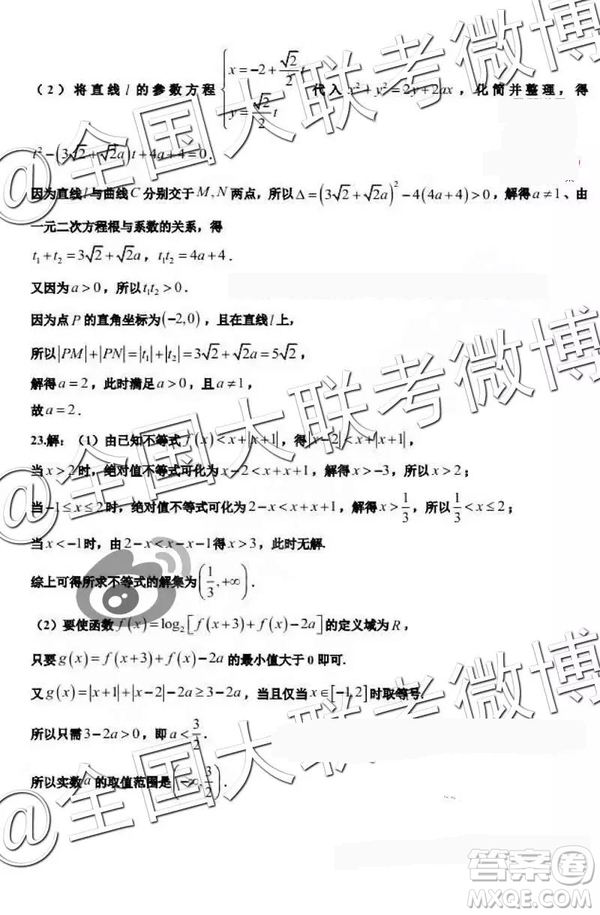 （2）将直线 l 的参数方程 { x=-2+(√2/2)t  y=(√2/2)t 代入 x²+y²=2y+2ax，化简并整理，得
t²-(3√2+√2a)t+4a+4=0.
因为直线 l 与曲线 C 分别交于 M,N 两点，所以 Δ=(3√2+√2a)²-4(4a+4)>0，解得 a≠1、由
一元二次方程根与系数的关系，得
t₁+t₂=3√2+√2a，t₁t₂=4a+4.
又因为 a>0，所以 t₁t₂>0.
因为点 P 的直角坐标为(-2,0)，且在直线 l 上，
所以|PM|+|PN|=|t₁|+|t₂|=3√2+√2a=5√2，
解得 a=2，此时满足 a>0，且 a≠1，
故 a=2.
23.解：（1）由已知不等式 f(x)<x+|x+1|，得|x-2|<x+|x+1|，
当 x>2 时，绝对值不等式可化为 x-2<x+x+1，解得 x>-3，所以 x>2；
当 -1≤x≤2 时，绝对值不等式可化为 2-x<x+x+1，解得 x>1/3，所以 1/3<x≤2；
当 x<-1 时，由 2-x<x-x-1 得 x>3，此时无解.
综上可得所求不等式的解集为(1/3,+∞).
（2）要使函数 f(x)=log₂[f(x+3)+f(x)-2a]的定义域为 R，
只要 g(x)=f(x+3)+f(x)-2a 的最小值大于 0 即可.
又 g(x)=|x+1|+|x-2|-2a≥3-2a，当且仅当 x∈[-1,2]时取等号.
所以只需 3-2a>0，即 a<3/2.
所以实数 a 的取值范围是(-∞,3/2).
@全国大联考微博
@全国大联考微博
@全国大联考微博
答案圈
MXQE.COM